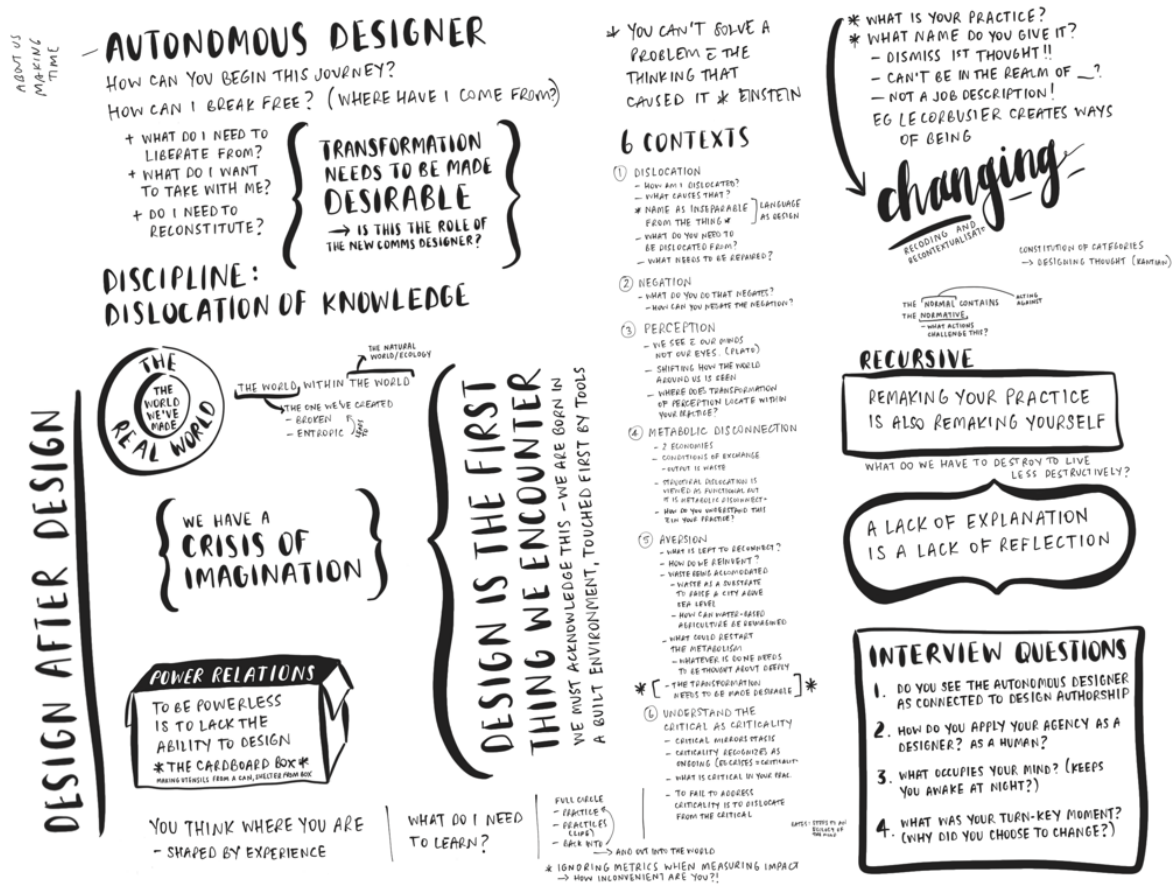 ABOUT US
MAKING
TIME
AUTONOMOUS DESIGNER
HOW CAN YOU BEGIN THIS JOURNEY?
HOW CAN I BREAK FREE? (WHERE HAVE I COME FROM?)
+ WHAT DO I NEED TO
LIBERATE FROM?
+ WHAT DO I WANT
TO TAKE WITH ME?
+ DO I NEED TO
RECONSTITUTE?
TRANSFORMATION
NEEDS TO BE MADE
DESIRABLE
→ IS THIS THE ROLE OF
THE NEW COMMS DESIGNER?
DISCIPLINE:
DISLOCATION OF KNOWLEDGE
THE
REAL WORLD
THE
WORLD
WE'VE
MADE
THE NATURAL
WORLD/ECOLOGY
THE WORLD WITHIN THE WORLD
THE ONE WE'VE CREATED
- BROKEN
- ENTROPIC
LEADS
TO
DESIGN AFTER DESIGN
WE HAVE A
CRISIS OF
IMAGINATION
DESIGN IS THE FIRST
THING WE ENCOUNTER
WE MUST ACKNOWLEDGE THIS - WE ARE BORN IN
A BUILT ENVIRONMENT, TOUCHED FIRST BY TOOLS
POWER RELATIONS
TO BE POWERLESS
IS TO LACK THE
ABILITY TO DESIGN
* THE CARDBOARD BOX *
MAKING UTENSILS FROM A CAN, SHELTER FROM BOX
YOU THINK WHERE YOU ARE
- SHAPED BY EXPERIENCE
WHAT DO I NEED
TO LEARN?
FULL CIRCLE
- PRACTICE
- PRACTICES
(LIFE)
- BACK INTO
→ AND OUT INTO THE WORLD
* IGNORING METRICS WHEN MEASURING IMPACT
→ HOW INCONVENIENT ARE YOU?!
* YOU CAN'T SOLVE A
PROBLEM C THE
THINKING THAT
CAUSED IT * EINSTEIN
6 CONTEXTS
① DISLOCATION
- HOW AM I DISLOCATED?
- WHAT CAUSES THAT?
* NAME AS INSEPARABLE
FROM THE THING *
LANGUAGE
AS DESIGN
- WHAT DO YOU NEED TO
BE DISLOCATED FROM?
- WHAT NEEDS TO BE REPAIRED?
② NEGATION
- WHAT DO YOU DO THAT NEGATES?
- HOW CAN YOU NEGATE THE NEGATION?
③ PERCEPTION
- WE SEE C OUR MINDS
NOT OUR EYES. (PLATO)
- SHIFTING HOW THE WORLD
AROUND US IS SEEN
- WHERE DOES TRANSFORMATION
OF PERCEPTION LOCATE WITHIN
YOUR PRACTICE?
④ METABOLIC DISCONNECTION
- 2 ECONOMIES
- CONDITIONS OF EXCHANGE
- OUTPUT IS WASTE
- STRUCTURAL DISLOCATION IS
VIEWED AS FUNCTIONAL BUT
IT IS METABOLIC DISCONNECT -
- HOW DO YOU UNDERSTAND THIS
IN YOUR PRACTICE?
⑤ AVERSION
- WHAT IS LEFT TO RECONNECT?
- HOW DO WE REINVENT?
- WASTE BEING ACCOMODATED
- WASTE AS A SUBSTRATE
TO RAISE A CITY ABOVE
SEA LEVEL
- HOW CAN WATER-BASED
AGRICULTURE BE REIMAGINED
- WHAT COULD RESTART
THE METABOLISM
- WHATEVER IS DONE NEEDS
TO BE THOUGHT ABOUT DEEPLY
* [ - THE TRANSFORMATION
NEEDS TO BE MADE DESIRABLE ] *
⑥ UNDERSTAND THE
CRITICAL AS CRITICALITY
- CRITICAL MIRRORS STASIS
- CRITICALITY RECOGNIZES AS
ONGOING
- WHAT IS CRITICAL IN YOUR PRAC.
- TO FAIL TO ADDRESS
CRITICALITY IS TO DISLOCATE
FROM THE CRITICAL
* WHAT IS YOUR PRACTICE?
* WHAT NAME DO YOU GIVE IT?
- DISMISS 1ST THOUGHT!!
- CAN'T BE IN THE REALM OF __?
- NOT A JOB DESCRIPTION!
EG LE CORBUSIER CREATES WAYS
OF BEING
changing
RECODING AND
RECONTEXTUALISATO
CONSTITUTION OF CATEGORIES
→ DESIGNING THOUGHT (KANTIAN)
THE NORMAL CONTAINS
THE NORMATIVE
ACTING
AGAINST
- WHAT ACTIONS
CHALLENGE THIS?
RECURSIVE
REMAKING YOUR PRACTICE
IS ALSO REMAKING YOURSELF
WHAT DO WE HAVE TO DESTROY TO LIVE
LESS DESTRUCTIVELY?
A LACK OF EXPLANATION
IS A LACK OF REFLECTION
INTERVIEW QUESTIONS
1. DO YOU SEE THE AUTONOMOUS DESIGNER
AS CONNECTED TO DESIGN AUTHORSHIP
2. HOW DO YOU APPLY YOUR AGENCY AS A
DESIGNER? AS A HUMAN?
3. WHAT OCCUPIES YOUR MIND? (KEEPS
YOU AWAKE AT NIGHT?)
4. WHAT WAS YOUR TURN-KEY MOMENT?
(WHY DID YOU CHOOSE TO CHANGE?)